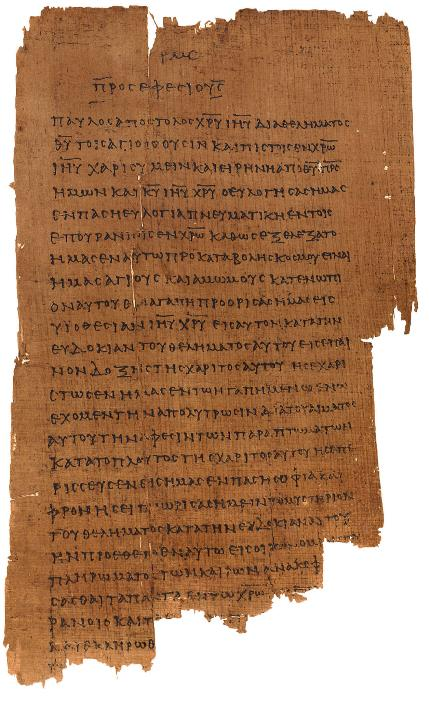 ΡΜϚ
ΠΡΟϹΕΦΕϹΙΟΥϹ
ΠΑΥΛΟϹΑΠΟϹΤΟΛΟϹΧ̅Ρ̅Υ̅Ι̅Η̅Υ̅ΔΙΑΘΕΛΗΜΑΤΟϹ
Θ̅Υ̅ΤΟΙϹΑΓΙΟΙϹΟΥϹΙΝΚΑΙΠΙϹΤΟΙϹΕΝΧ̅Ρ̅Ω̅
Ι̅Η̅Υ̅ΧΑΡΙϹΥΜΕΙΝΚΑΙΕΙΡΗΝΗΑΠΟΘ̅Υ̅Π̅Ρ̅Ϲ̅
ΗΜΩΝΚΑΙΚ̅Υ̅Ι̅Η̅Υ̅Χ̅Ρ̅Υ̅ΟΕΥΛΟΓΗϹΑϹΗΜΑϹ
ΕΝΠΑϹΗΕΥΛΟΓΙΑΠΝΕΥΜΑΤΙΚΗΕΝΤΟΙϹ
ΕΠΟΥΡΑΝΙΟΙϹΕΝΧ̅Ρ̅Ω̅ΚΑΘΩϹΕΞΕΛΕΞΑΤΟ
ΗΜΑϹΕΝΑΥΤΩΠΡΟΚΑΤΑΒΟΛΗϹΚΟϹΜΟΥΕΙΝΑΙ
ΗΜΑϹΑΓΙΟΥϹΚΑΙΑΜΩΜΟΥϹΚΑΤΕΝΩΠΙ
ΟΝΑΥΤΟΥΕΝΑΓΑΠΗΠΡΟΟΡΙϹΑϹΗΜΑϹΕΙϹ
ΥΙΟΘΕϹΙΑΝΙ̅Η̅Υ̅Χ̅Ρ̅Υ̅ΕΙϹΑΥΤΟΝΚΑΤΑΤΗΝ
ΕΥΔΟΚΙΑΝΤΟΥΘΕΛΗΜΑΤΟϹΑΥΤΟΥΕΙϹΕΠΑΙ
ΝΟΝΔΟΞΗϹΤΗϹΧΑΡΙΤΟϹΑΥΤΟΥΗϹΕΧΑΡΙ
ΤΩϹΕΝΗΜΑϹΕΝΤΩΗΓΑΠΗΜΕΝΩΕΝΩ
ΕΧΟΜΕΝΤΗΝΑΠΟΛΥΤΡΩϹΙΝΔΙΑΤΟΥΑΙΜΑΤΟϹ
ΑΥΤΟΥΤΗΝΑΦΕϹΙΝΤΩΝΠΑΡΑΠΤΩΜΑΤΩΝ
ΚΑΤΑΤΟΠΛΟΥΤΟϹΤΗϹΧΑΡΙΤΟϹΑΥΤΟΥΗϹΕΠΕ
ΡΙϹϹΕΥϹΕΝΕΙϹΗΜΑϹΕΝΠΑϹΗϹΟΦΙΑΚΑΙ
ΦΡΟΝΗϹΕΙΓΝΩΡΙϹΑϹΗΜΕΙΝΤΟΜΥϹΤΗΡΙΟΝ
ΤΟΥΘΕΛΗΜΑΤΟϹΚΑΤΑΤΗΝΕΥΔΟΚΙΑΝΑΥΤΟΥ
ΗΝΠΡΟΕΘΕΤΟΕΝΑΥΤΩΕΙϹΟΙ
ΠΛΗΡΩΜΑΤΟϹΤΩΝΚΑΙΡΩΝΑΝΑΚΕΦ
ϹΑϹΘΑΙΤΑΠΑΝΤΑΕΝΤΩΧ̅Ρ̅Ω̅
ΡΑΝΟΙϹΚΑΙΤ
ΕΚΛΗΡΩΘ